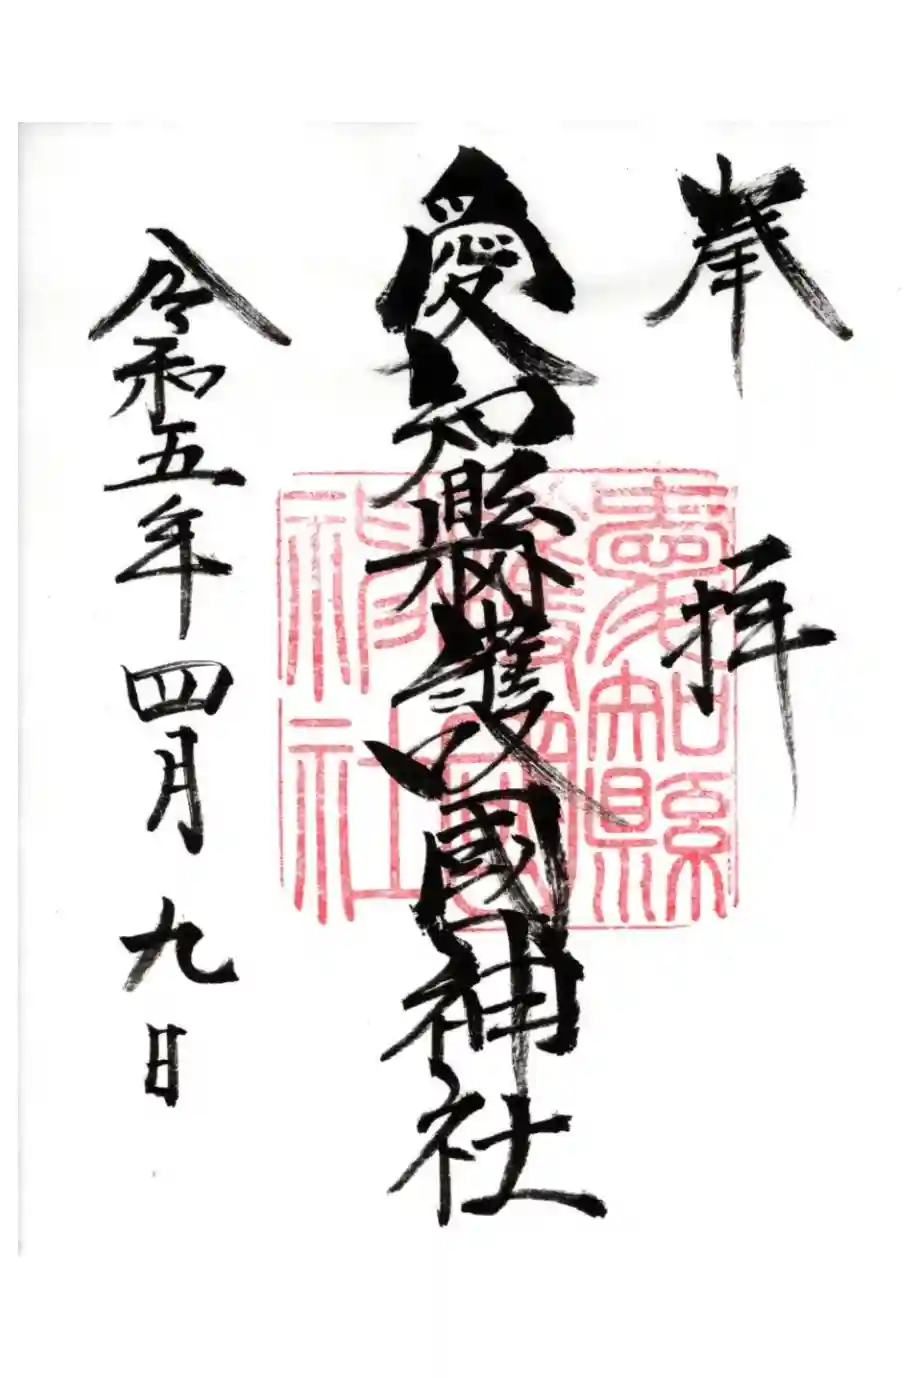 奉拝
愛知縣護國神社
令和五年四月九日
愛知縣
護國
神社